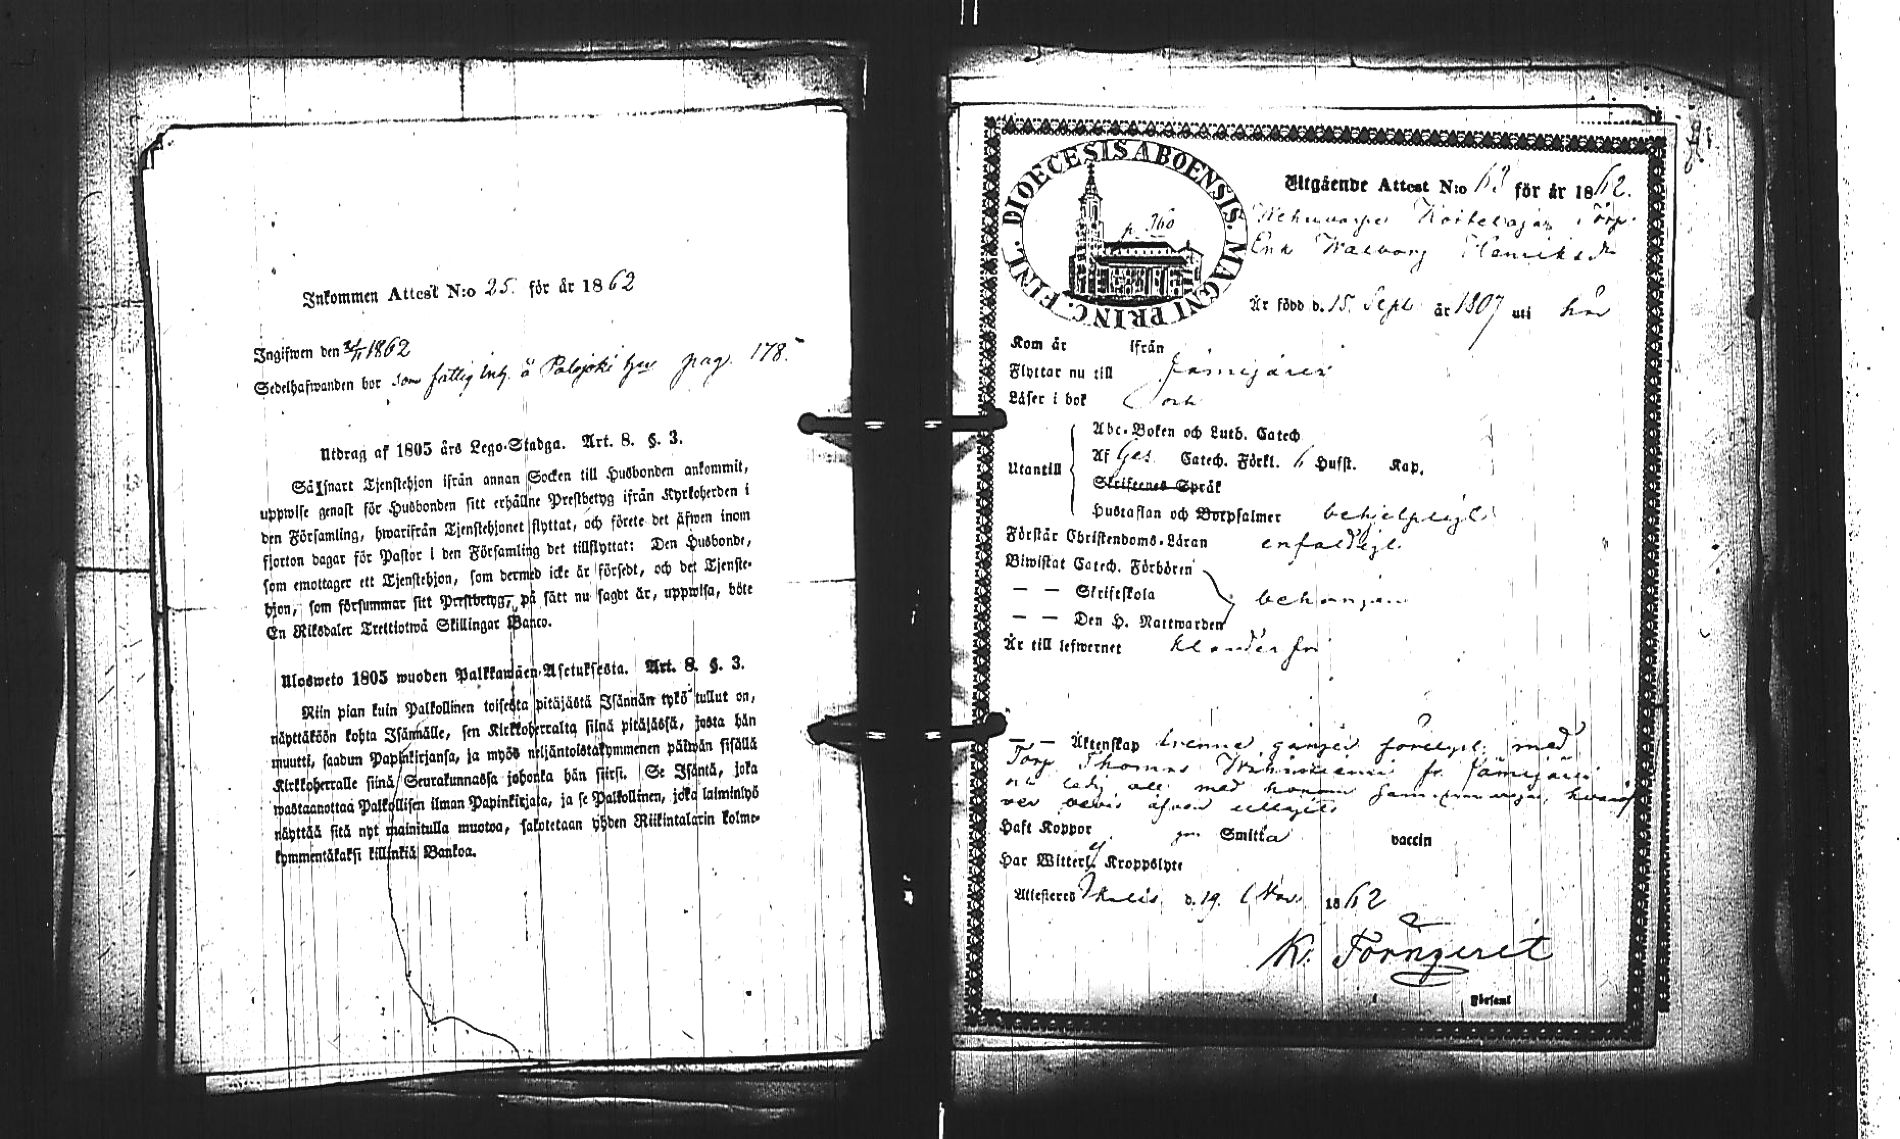 Inkommen Attest N:o 25. för år 1862
Ingifwen den 21/11 1862
Sedelhafwanden bor som fattig inh. å Palojoki hn pag. 178.
Utdrag af 1805 års Lego-Stadga. Art. 8. §. 3.
Såsnart Tjenstehjon ifrån annan Socken till Husbonden ankommit,
uppwise genast för Husbonden sitt erhållne Prestbetyg ifrån Kyrkoherden i
den Församling, hwarifrån Tjenstehjonet flyttat, och förete det äfwen inom
fjorton dagar för Pastor i den Församling det tillflyttat: Den Husbonde,
som emottager ett Tjenstehjon, som dermed icke är försedt, och det Tjenste-
hjon, som försummar sitt Prestbetyg, på sätt nu sagdt är, uppwisa, böte
En Riksdaler Trettiotwå Skillingar Banco.
Ulosweto 1805 wuoden Palkkawäen-Asetuksesta. Art. 8. §. 3.
Niin pian kuin Palkollinen toisesta pitäjästä Isännän tykö tullut on,
näyttäköön kohta Isännälle, sen Kirkkoherralta siinä pitäjässä, josta hän
muutti, saadun Papinkirjansa, ja myös neljäntoistakymmenen päiwän sisällä
Kirkkoherralle siinä Seurakunnassa johonka hän siirsi. Se Isäntä, joka
wastaanottaa Palkollisen ilman Papinkirjata, ja se Palkollinen, joka laiminlyö
näyttää sitä nyt mainitulla muotoa, sakotetaan yhden Riikintalarin kolme-
kymmentäkaksi killinkiä Bankoa.
DIOECESIS ABOENSIS. MAGNI PRINC. FINL.
p. 360
Utgående Attest N:o 63 för år 1862.
Torp.
Enk Walborg Henriksdr
Är född d. 15. Sept år 1807 uti här
Kom år ifrån
Flyttar nu till Jämijärvi
Läser i bok
Utantill
Abc-Boken och Luth. Catech
Af Ges. Catech. Förkl. 6 Hufst. Kap.
Skriftenes Språk
Hustaflan och Botpsalmer behjelpligt
Förstår Christendoms-Läran enfaldigt
Biwistat Catech. Förhören
— — Skriftskola
— — Den H. Nattwarden
Är till lefwernet klanderfri
— — Äktenskap trenne gånger förelyst med
Torp Thomas fr Jämijärvi
med honom
Haft Koppor Smitta vaccin
Har Witterl. Kroppslyte
Attesteras Ikalis d. 19. Nov. 1862
K. Forngerét